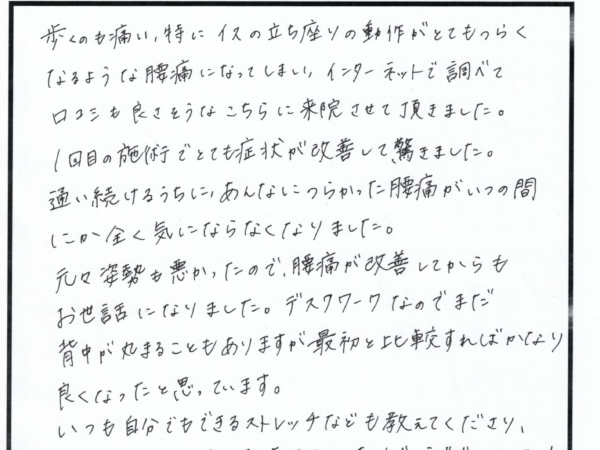 歩くのも痛い、特にイスの立ち座りの動作がとてもつらく
なるような腰痛になってしまい、インターネットで調べて
口コミも良さそうなこちらに来院させて頂きました。
1回目の施術でとても症状が改善して驚きました。
通い続けるうちに、あんなにつらかった腰痛がいつの間
にか全く気にならなくなりました。
元々姿勢も悪かったので、腰痛が改善してからも
お世話になりました。デスクワークなのでまだ
背中が丸まることもありますが最初と比較すればかなり
良くなったと思っています。
いつも自分でもできるストレッチなども教えてくださり、